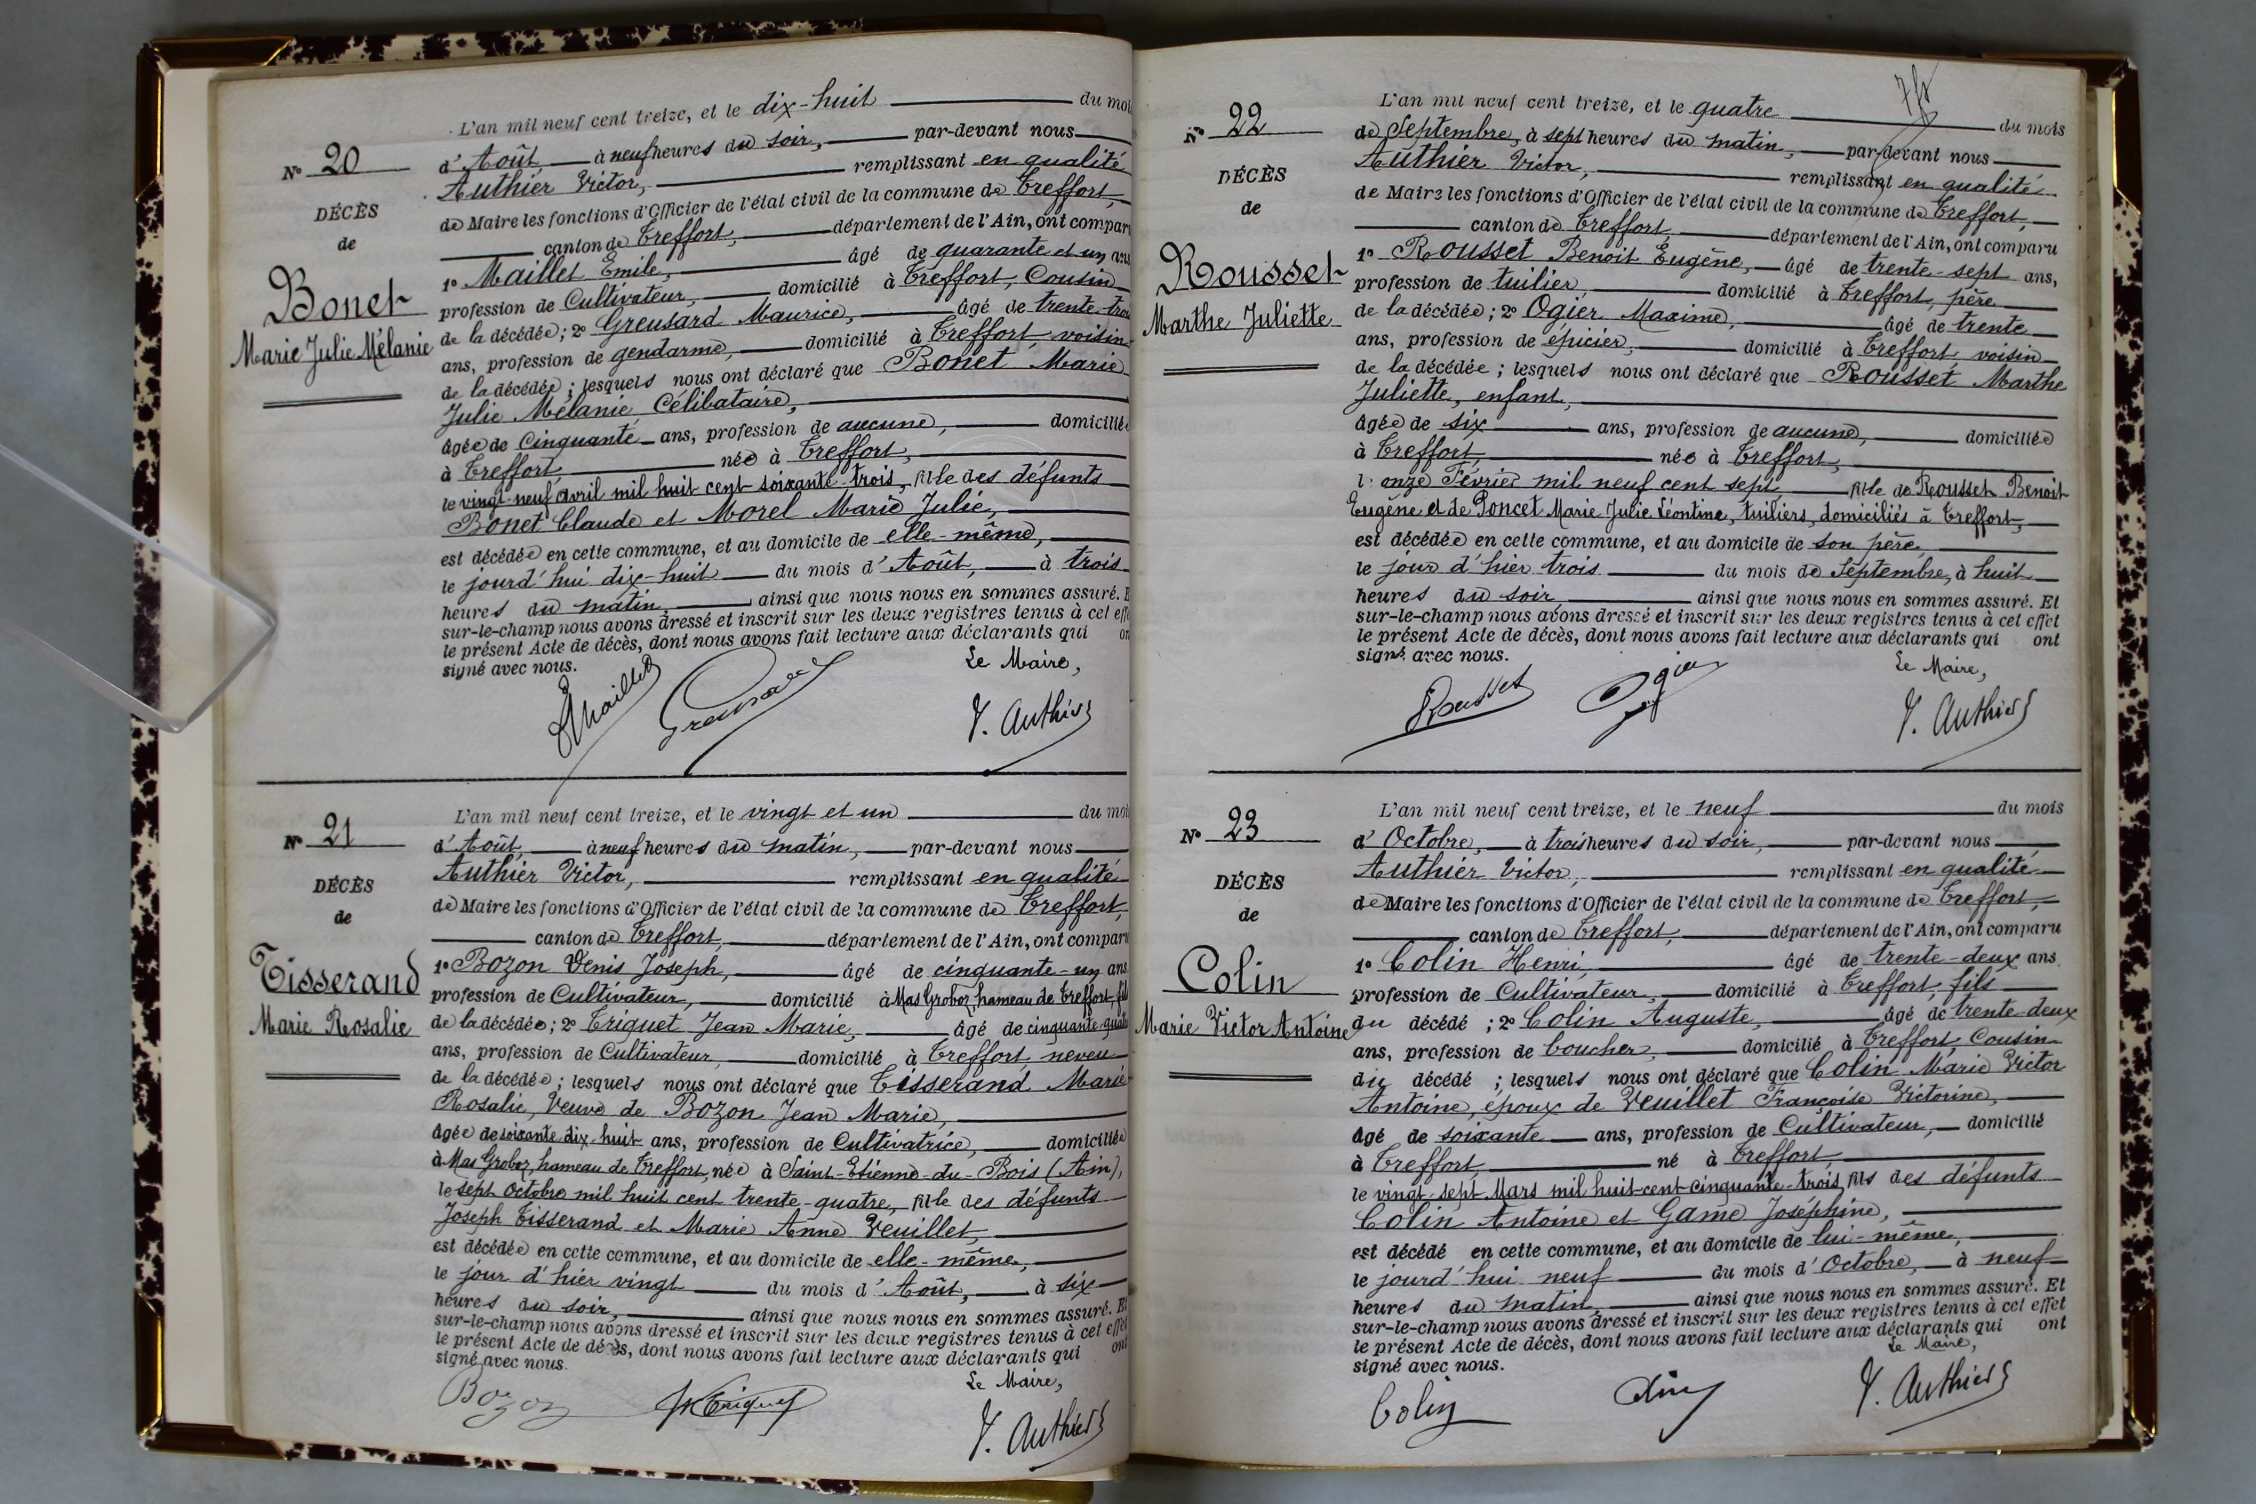 L'an mil neuf cent treize, et le dix-huit du mois
N° 20
d'Août à neuf heures du soir, par-devant nous
Authier Victor, remplissant en qualité
DÉCÈS
de Maire les fonctions d'Officier de l'état civil de la commune de Treffort,
de
canton de Treffort, département de l'Ain, ont comparu
Bonet
1° Maillet Emile, âgé de quarante et un ans
profession de Cultivateur, domicilié à Treffort, Cousin
Marie Julie Mélanie
de la décédée; 2° Greusard Maurice, âgé de trente-trois
ans, profession de gendarme, domicilié à Treffort, voisin
de la décédée; lesquels nous ont déclaré que Bonet Marie
Julie Mélanie, Célibataire,
âgée de Cinquante ans, profession de aucune, domiciliée
à Treffort née à Treffort,
le vingt-neuf avril mil huit cent soixante-trois, fille des défunts
Bonet Claude et Morel Marie Julie,
est décédée en cette commune, et au domicile de elle-même,
le jourd'hui dix-huit du mois d'Août, à trois
heures du matin, ainsi que nous nous en sommes assuré. Et
sur-le-champ nous avons dressé et inscrit sur les deux registres tenus à cet effet
le présent Acte de décès, dont nous avons fait lecture aux déclarants qui ont
signé avec nous.
Le Maire,
EMaillet Greusard V. Authier
L'an mil neuf cent treize, et le vingt et un du mois
N° 21
d'Août, à neuf heures du matin, par-devant nous
Authier Victor, remplissant en qualité
DÉCÈS
de Maire les fonctions d'Officier de l'état civil de la commune de Treffort,
de
canton de Treffort, département de l'Ain, ont comparu
Tisserand
1° Bozon Denis Joseph, âgé de cinquante-un ans
profession de Cultivateur, domicilié à Mas Groboz, hameau de Treffort, fils
Marie Rosalie
de la décédée; 2° Triquet Jean Marie, âgé de cinquante-quatre
ans, profession de Cultivateur, domicilié à Treffort, neveu
de la décédée; lesquels nous ont déclaré que Tisserand Marie
Rosalie, Veuve de Bozon Jean Marie,
âgée de soixante dix-huit ans, profession de Cultivatrice, domiciliée
à Mas Groboz, hameau de Treffort, née à Saint-Etienne-du-Bois (Ain),
le sept Octobre mil huit cent trente-quatre, fille des défunts
Joseph Tisserand et Marie Anne Veuillet,
est décédée en cette commune, et au domicile de elle-même,
le jour d'hier vingt du mois d'Août, à six
heures du soir, ainsi que nous nous en sommes assuré. Et
sur-le-champ nous avons dressé et inscrit sur les deux registres tenus à cet effet
le présent Acte de décès, dont nous avons fait lecture aux déclarants qui ont
signé avec nous.
Le Maire,
Bozon JMTriquet V. Authier
L'an mil neuf cent treize, et le quatre du mois
N° 22
de Septembre, à sept heures du matin, par-devant nous
Authier Victor, remplissant en qualité
DÉCÈS
de Maire les fonctions d'Officier de l'état civil de la commune de Treffort,
de
canton de Treffort, département de l'Ain, ont comparu
Rousset
1° Rousset Benoit Eugène, âgé de trente-sept ans,
profession de tuilier, domicilié à Treffort, père
Marthe Juliette
de la décédée; 2° Ogier Maxime, âgé de trente
ans, profession de épicier, domicilié à Treffort, voisin
de la décédée; lesquels nous ont déclaré que Rousset Marthe
Juliette, enfant,
âgée de six ans, profession de aucune, domiciliée
à Treffort, née à Treffort,
l'onze Février mil neuf cent sept, fille de Rousset Benoit
Eugène et de Poncet Marie Julie Léontine, tuiliers, domiciliés à Treffort,
est décédée en cette commune, et au domicile de son père,
le jour d'hier trois du mois de Septembre, à huit
heures du soir ainsi que nous nous en sommes assuré. Et
sur-le-champ nous avons dressé et inscrit sur les deux registres tenus à cet effet
le présent Acte de décès, dont nous avons fait lecture aux déclarants qui ont
signé avec nous.
Le Maire,
Rousset Ogier V. Authier
L'an mil neuf cent treize, et le neuf du mois
N° 23
d'Octobre, à trois heures du soir, par-devant nous
Authier Victor, remplissant en qualité
DÉCÈS
de Maire les fonctions d'Officier de l'état civil de la commune de Treffort,
de
canton de Treffort, département de l'Ain, ont comparu
Colin
1° Colin Henri, âgé de trente-deux ans
profession de Cultivateur, domicilié à Treffort, fils
Marie Victor Antoine
du décédé; 2° Colin Auguste, âgé de trente-deux
ans, profession de boucher, domicilié à Treffort, Cousin
du décédé; lesquels nous ont déclaré que Colin Marie Victor
Antoine, époux de Veuillet Françoise Victorine,
âgé de soixante ans, profession de Cultivateur, domicilié
à Treffort, né à Treffort,
le vingt-sept Mars mil huit cent cinquante-trois, fils des défunts
Colin Antoine et Game Joséphine,
est décédé en cette commune, et au domicile de lui-même,
le jourd'hui neuf du mois d'Octobre, à neuf
heures du matin, ainsi que nous nous en sommes assuré. Et
sur-le-champ nous avons dressé et inscrit sur les deux registres tenus à cet effet
le présent Acte de décès, dont nous avons fait lecture aux déclarants qui ont
signé avec nous.
Le Maire,
Colin Colin V. Authier